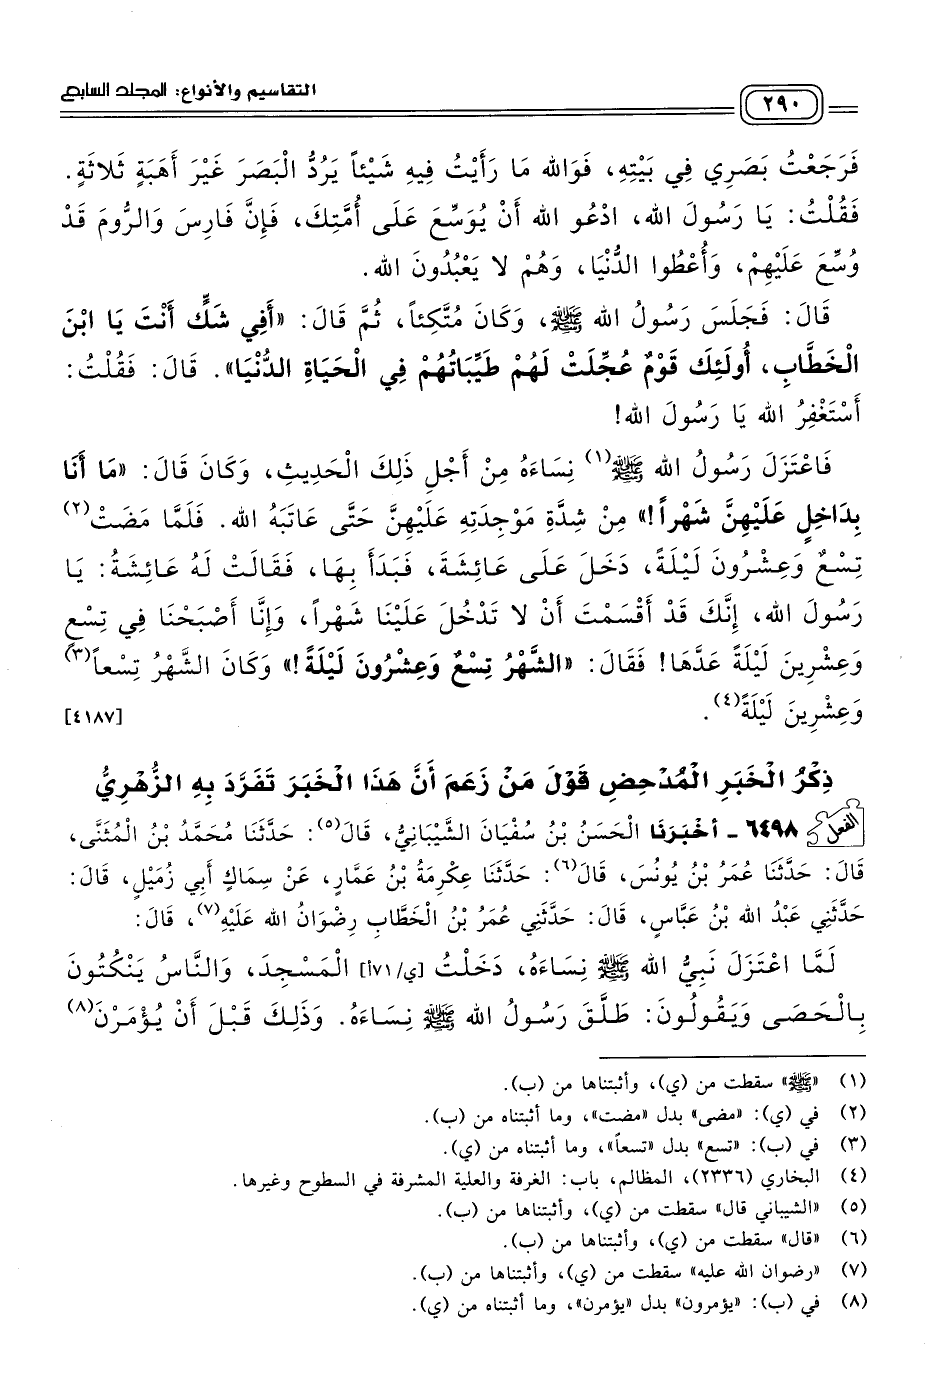 ٢٩٠
التقاسيم والأنواع: المجلد السابع
فَرَجَعْتُ بَصَرِي فِي بَيْتِهِ، فَوَالله مَا رَأَيْتُ فِيهِ شَيْئاً يَرُدُّ الْبَصَرَ غَيْرَ أَهَبَةٍ ثَلاثَةٍ.
فَقُلْتُ: يَا رَسُولَ الله، ادْعُو الله أَنْ يُوَسِّعَ عَلَى أُمَّتِكَ، فَإِنَّ فَارِسَ وَالرُّومَ قَدْ
وُسِّعَ عَلَيْهِمْ، وَأُعْطُوا الدُّنْيَا، وَهُمْ لا يَعْبُدُونَ الله.
قَالَ: فَجَلَسَ رَسُولُ الله ﷺ، وَكَانَ مُتَّكِئاً، ثُمَّ قَالَ: «أَفِي شَكٍّ أَنْتَ يَا ابْنَ
الْخَطَّابِ، أُولَئِكَ قَوْمٌ عُجِّلَتْ لَهُمْ طَيِّبَاتُهُمْ فِي الْحَيَاةِ الدُّنْيَا». قَالَ: فَقُلْتُ:
أَسْتَغْفِرُ الله يَا رَسُولَ الله!
فَاعْتَزَلَ رَسُولُ الله ﷺ(١) نِسَاءَهُ مِنْ أَجْلِ ذَلِكَ الْحَدِيثِ، وَكَانَ قَالَ: «مَا أَنَا
بِدَاخِلٍ عَلَيْهِنَّ شَهْراً!» مِنْ شِدَّةِ مَوْجِدَتِهِ عَلَيْهِنَّ حَتَّى عَاتَبَهُ الله. فَلَمَّا مَضَتْ(٢)
تِسْعٌ وَعِشْرُونَ لَيْلَةً، دَخَلَ عَلَى عَائِشَةَ، فَبَدَأَ بِهَا، فَقَالَتْ لَهُ عَائِشَةُ: يَا
رَسُولَ الله، إِنَّكَ قَدْ أَقْسَمْتَ أَنْ لا تَدْخُلَ عَلَيْنَا شَهْراً، وَإِنَّا أَصْبَحْنَا فِي تِسْعٍ
وَعِشْرِينَ لَيْلَةً عَدَّهَا! فَقَالَ: «الشَّهْرُ تِسْعٌ وَعِشْرُونَ لَيْلَةً!» وَكَانَ الشَّهْرُ تِسْعاً(٣)
وَعِشْرِينَ لَيْلَةً(٤).
[٤١٨٧]
ذِكْرُ الْخَبَرِ الْمُدْحِضِ قَوْلَ مَنْ زَعَمَ أَنَّ هَذَا الْخَبَرَ تَفَرَّدَ بِهِ الزُّهْرِيُّ
الفعل ٦٤٩٨ - أَخْبَرَنَا الْحَسَنُ بْنُ سُفْيَانَ الشَّيْبَانِيُّ، قَالَ(٥): حَدَّثَنَا مُحَمَّدُ بْنُ الْمُثَنَّى،
قَالَ: حَدَّثَنَا عُمَرُ بْنُ يُونُسَ، قَالَ(٦): حَدَّثَنَا عِكْرِمَةُ بْنُ عَمَّارٍ، عَنْ سِمَاكٍ أَبِي زُمَيْلٍ، قَالَ:
حَدَّثَنِي عَبْدُ الله بْنُ عَبَّاسٍ، قَالَ: حَدَّثَنِي عُمَرُ بْنُ الْخَطَّابِ رِضْوَانُ الله عَلَيْهِ(٧)، قَالَ:
لَمَّا اعْتَزَلَ نَبِيُّ الله ﷺ نِسَاءَهُ، دَخَلْتُ [ي/٧١أ] الْمَسْجِدَ، وَالنَّاسُ يَنْكُتُونَ
بِالْحَصَى وَيَقُولُونَ: طَلَّقَ رَسُولُ الله ﷺ نِسَاءَهُ. وَذَلِكَ قَبْلَ أَنْ يُؤْمَرْنَ(٨)
(١) «ﷺ» سقطت من (ي)، وأثبتناها من (ب).
(٢) في (ي): «مضى» بدل «مضت»، وما أثبتناه من (ب).
(٣) في (ب): «تسع» بدل «تسعاً»، وما أثبتناه من (ي).
(٤) البخاري (٢٣٣٦)، المظالم، باب: الغرفة والعلية المشرفة في السطوح وغيرها.
(٥) «الشيباني قال» سقطت من (ي)، وأثبتناها من (ب).
(٦) «قال» سقطت من (ي)، وأثبتناها من (ب).
(٧) «رضوان الله عليه» سقطت من (ي)، وأثبتناها من (ب).
(٨) في (ب): «يؤمرون» بدل «يؤمرن»، وما أثبتناه من (ي).